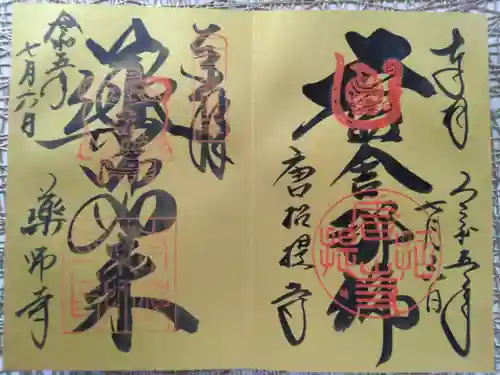 奉拝
令和五年
七月六日
盧舎那佛
唐招提寺
奉拝
薬師如来
令和五年
七月六日
薬師寺